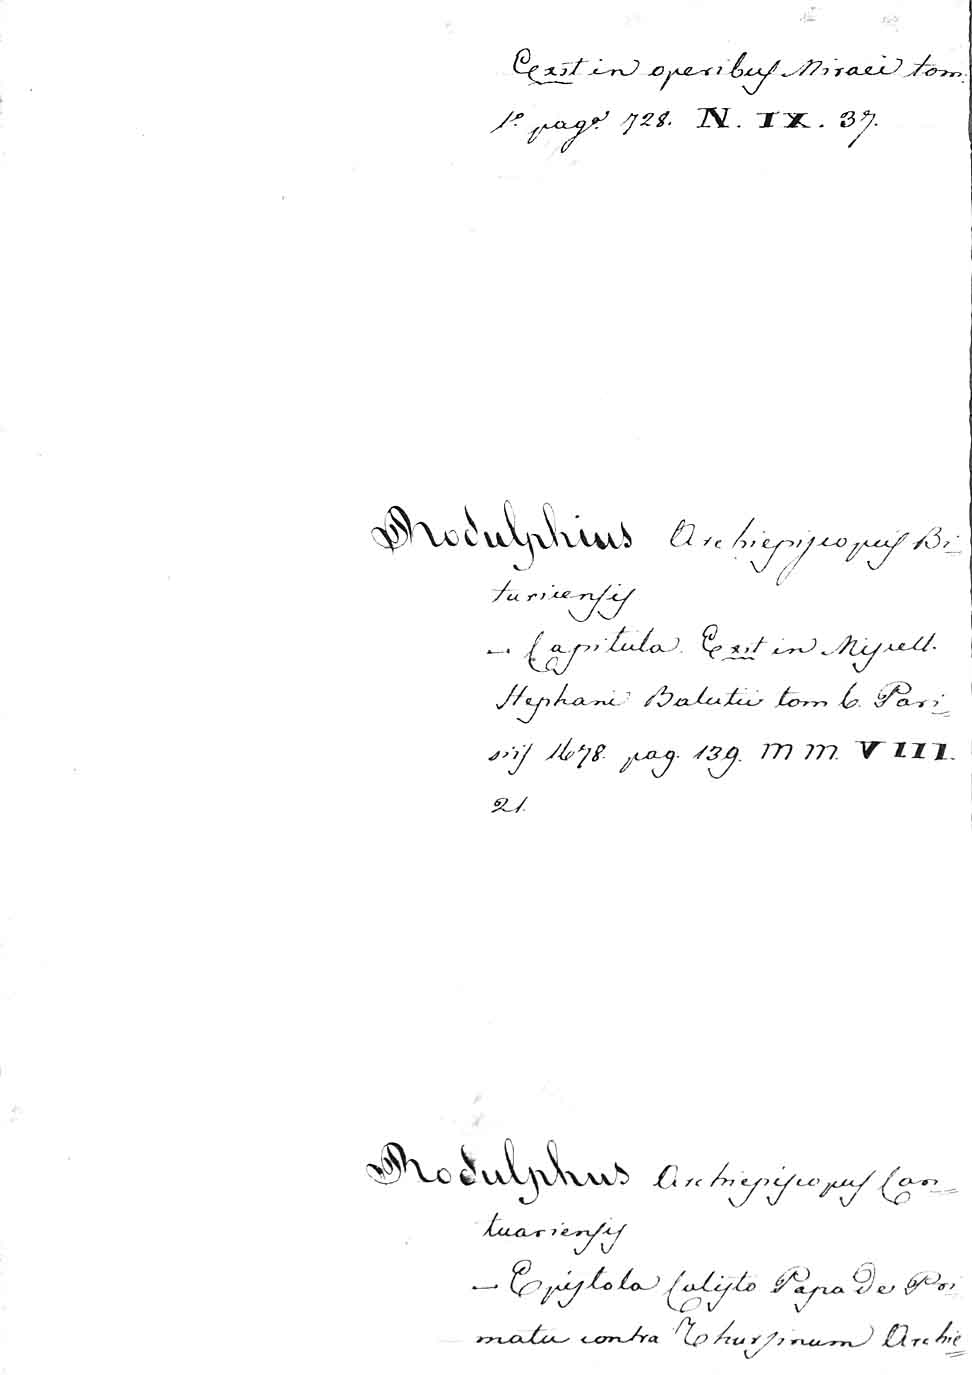 Exst in operibus Miraei tom.
1º pagª. 728. N. IX. 37.
Rodulphius Archiepiscopus Bi=
turicensis
— Capitula. Exst in Miscell.
Stephani Balutii tom 6. Pari=
siis 1678. pag. 139. m m. VIII.
21.
Rodulphus Archiepiscopus Can=
tuariensis
— Epistola Calisto Papa De Pri=
matu contra Thursinum Archie=